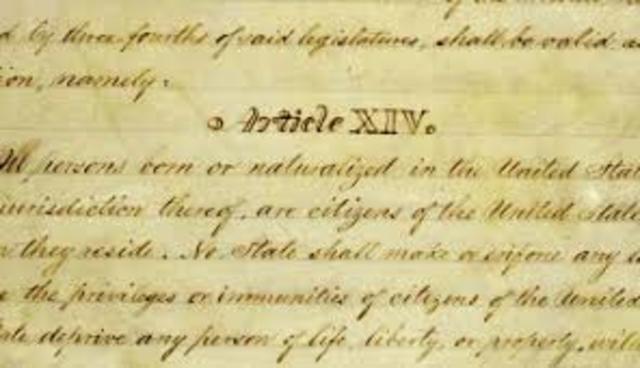 d by three fourths of said legislatures, shall be valid a
ion, namely:
Article XIV.
All persons born or naturalized in the United Stat
jurisdiction thereof, are citizens of the United State
n they reside. No State shall make or enforce any
e the privileges or immunities of citizens of the United
tate deprive any person of life, liberty, or property, with